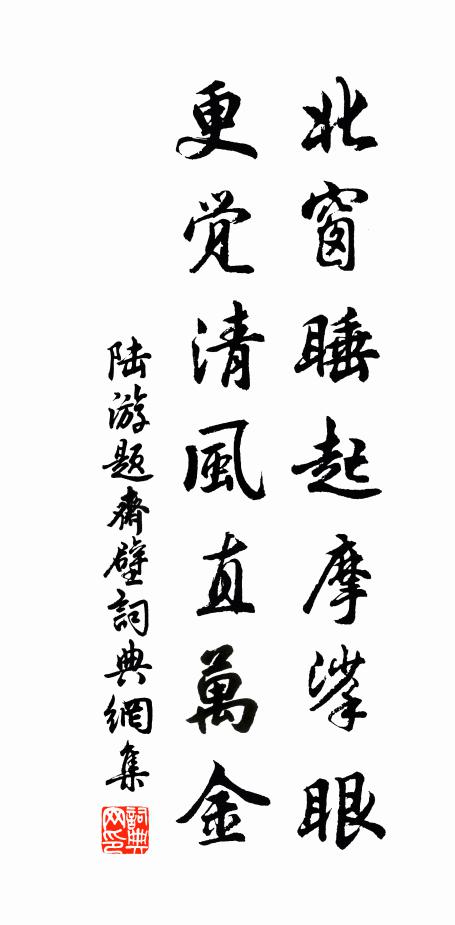 北窗睡起摩挲眼
更觉清風直萬金
陆游题齋壁詞典網集
詞典网印